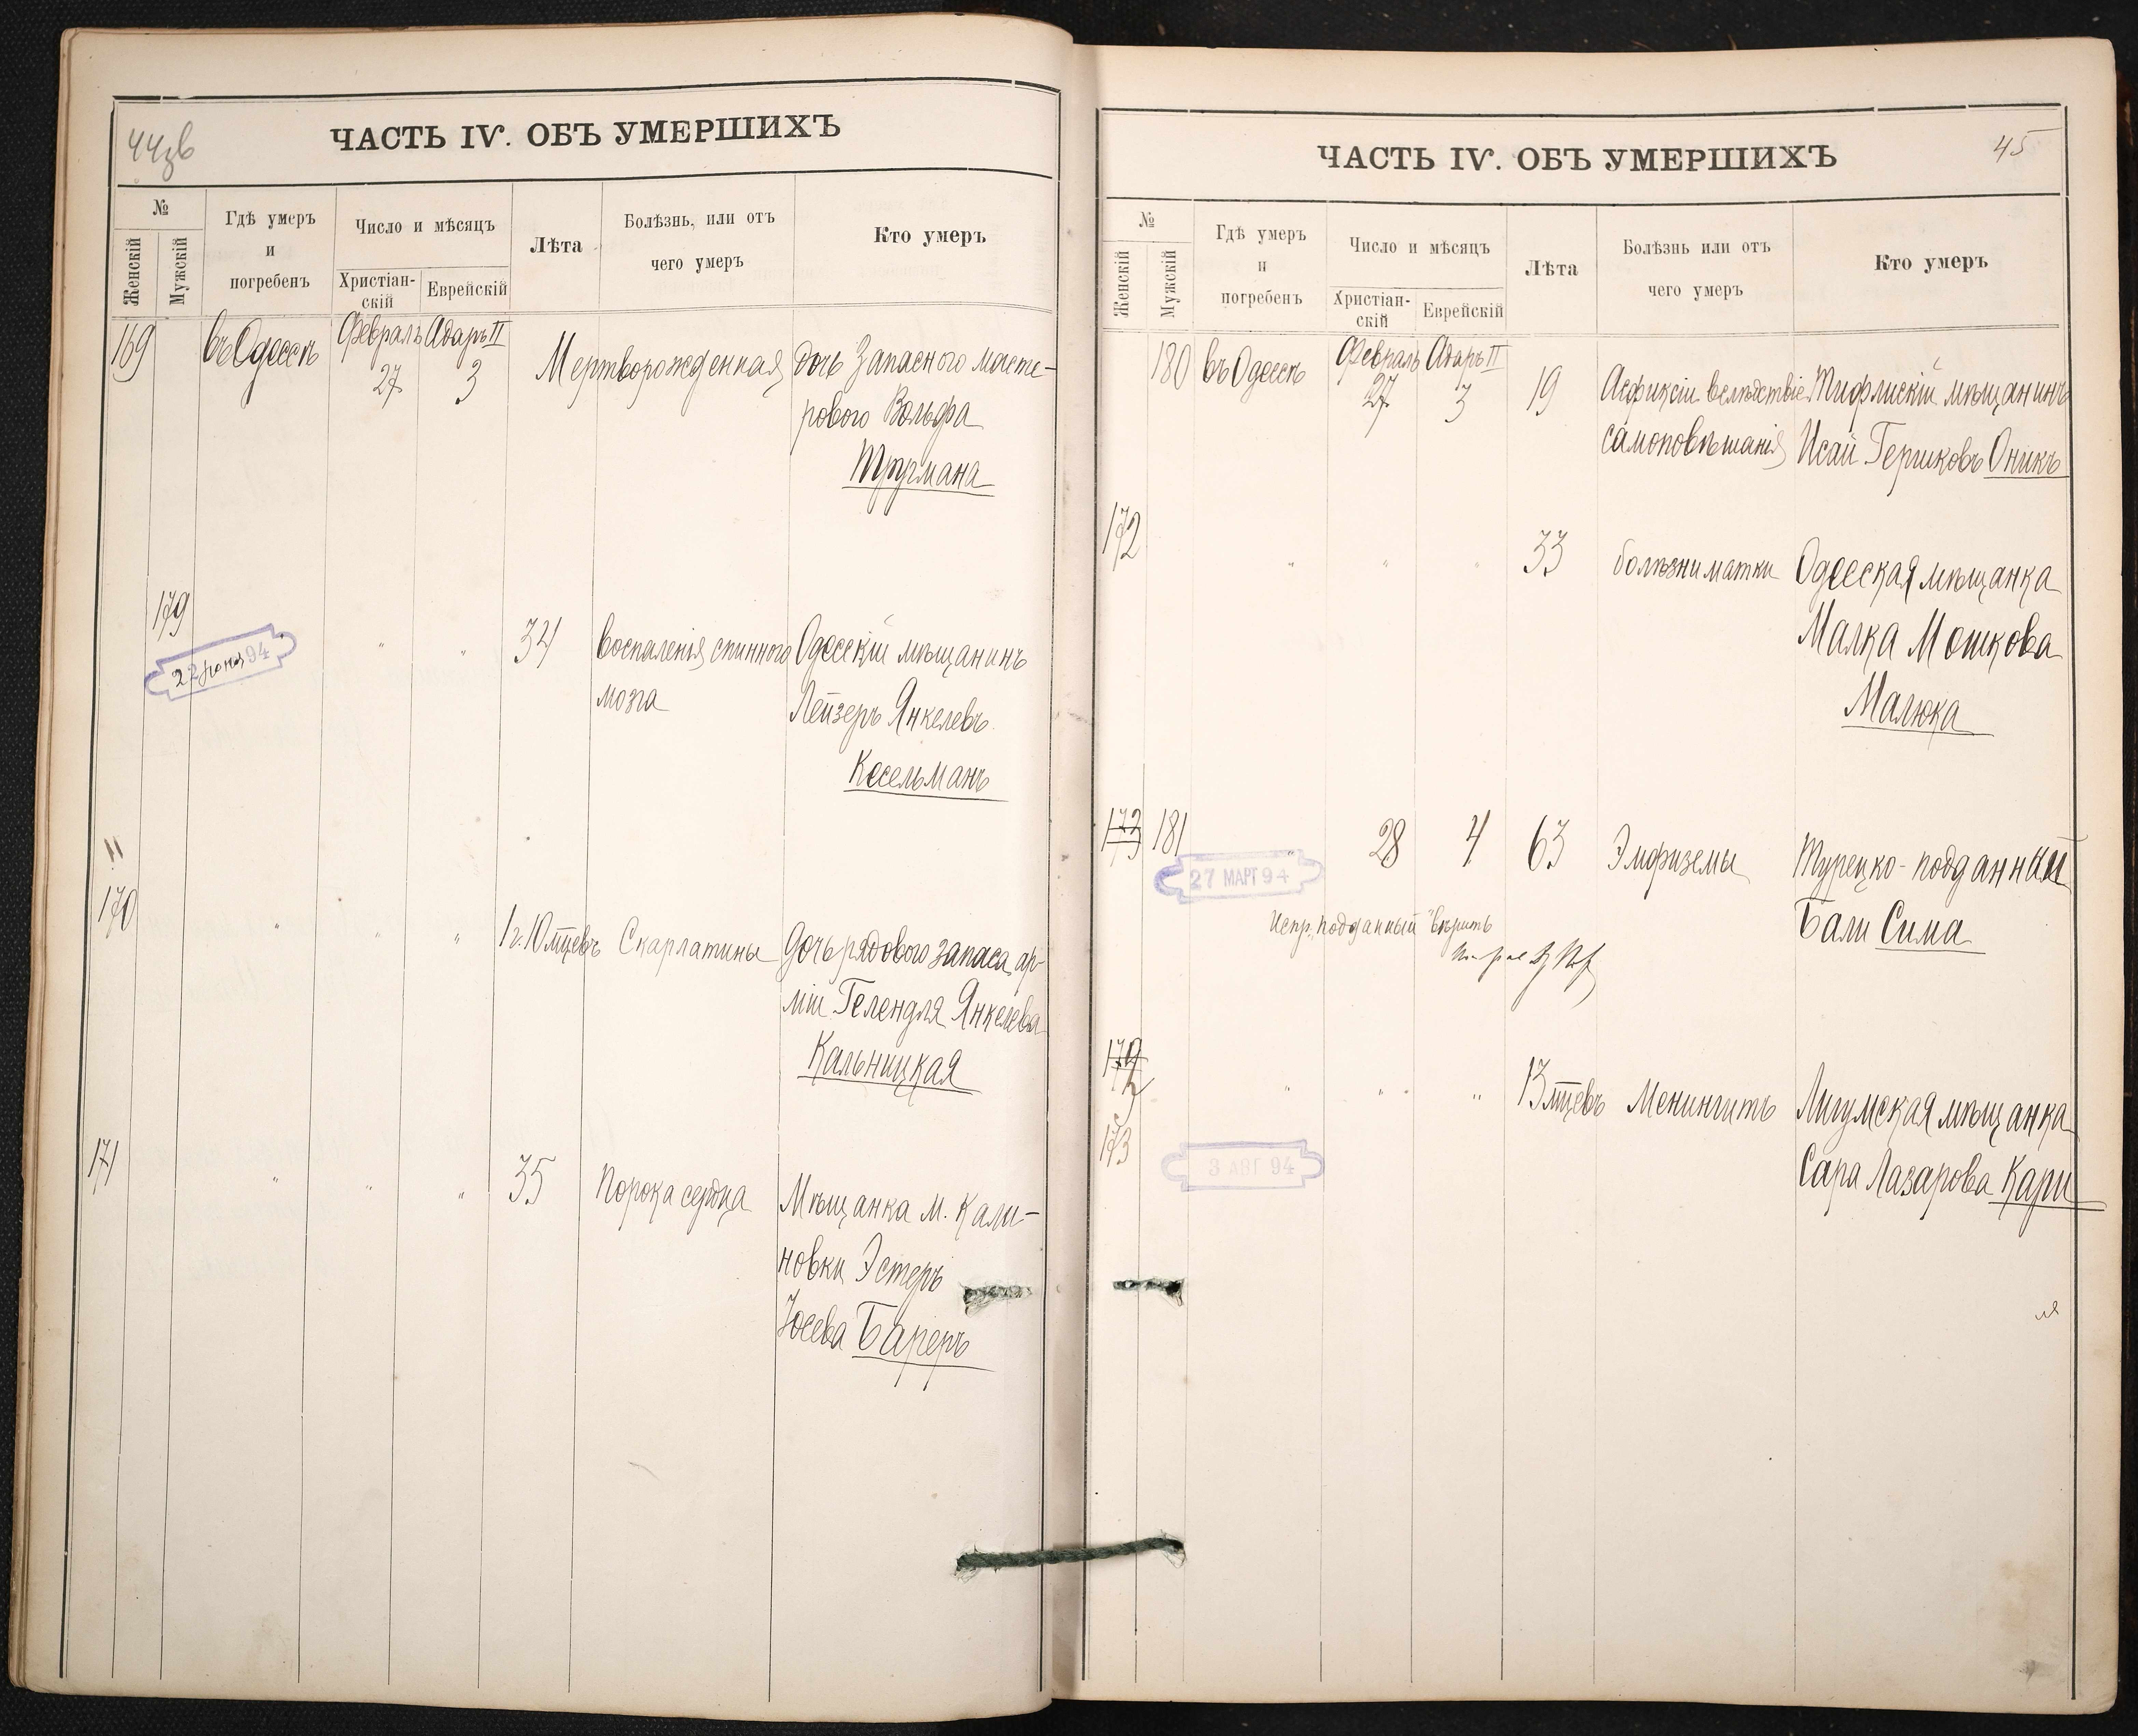 44зв
ЧАСТЬ IV. ОБЪ УМЕРШИХЪ
№
Женскій
Мужскій
Гдѣ умеръ
и
погребенъ
Число и мѣсяцъ
Христіан-
скій
Еврейскій
Лѣта
Болѣзнь, или отъ
чего умеръ
Кто умеръ
169 въ Одессѣ Февраль 27 Адаръ II 3 Мертворожденная дочь Запаснаго масте-
роваго Вольфа
Тругмана
179 " " 34 воспаленія спиннаго Одесскій мѣщанинъ
мозга Лейзеръ Янкелевъ
Кесельманъ
22 юня 94
170 " " " 1 г. 10 мцевъ Скарлатины Дочь рядоваго запаса ар-
міи Гелендля Янкелева
Кальницкая
171 " " " 35 Порока сердца Мѣщанка м. Кали-
новки Эстеръ
Юсева Бареръ
45
ЧАСТЬ IV. ОБЪ УМЕРШИХЪ
№
Женскій
Мужскій
Гдѣ умеръ
и
погребенъ
Число и мѣсяцъ
Христіан-
скій
Еврейскій
Лѣта
Болѣзнь или отъ
чего умеръ
Кто умеръ
180 въ Одессѣ Февраль 27 Адаръ II 3 19 Асфиксіи вслѣдствіе Тифлискій мѣщанинъ
самоповѣшанія Исай Гершковъ Оникъ
172 " " " 33 болѣзни матки Одесская мѣщанка
Малка Мошкова
Малюка
173 181 " 28 4 63 Эмфиземы Турецко-подданный
Бали Сима
27 МАРТ 94
Испр. "подданный" вѣрить
172 " " " 13 мцевъ Менингитъ Лигумская мѣщанка
173 Сара Лазарова Кари
3 АВГ 94